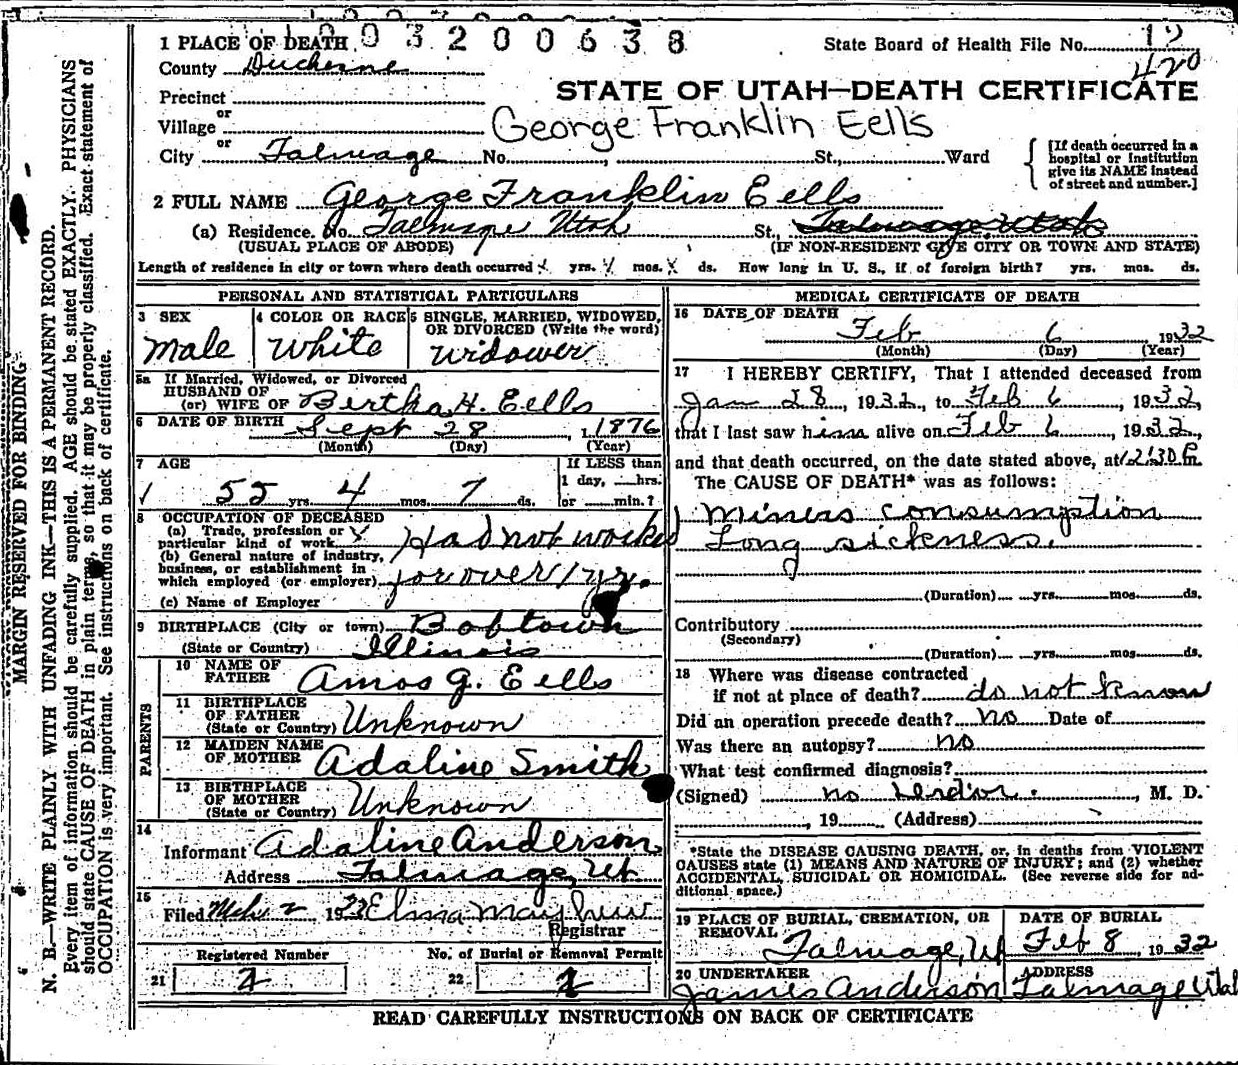 1003200638
1 PLACE OF DEATH
State Board of Health File No. 12
County Duchesne
420
STATE OF UTAH—DEATH CERTIFICATE
Precinct
or
Village
George Franklin Eells
or
City Talmage No. , St., Ward
[If death occurred in a
hospital or institution
give its NAME instead
of street and number.]
2 FULL NAME George Franklin Eells
(a) Residence. No. Talmage Utah St., Talmage Utah
(USUAL PLACE OF ABODE) (IF NON-RESIDENT GIVE CITY OR TOWN AND STATE)
Length of residence in city or town where death occurred yrs. mos. ds. How long in U. S., if of foreign birth? yrs. mos. ds.
PERSONAL AND STATISTICAL PARTICULARS
3 SEX
Male
4 COLOR OR RACE
White
5 SINGLE, MARRIED, WIDOWED,
OR DIVORCED (Write the word)
Widower
5a If Married, Widowed, or Divorced
HUSBAND OF
(or) WIFE OF Bertha H. Eells
6 DATE OF BIRTH Sept 28, 1 1876
(Month) (Day) (Year)
7 AGE
55 yrs. 4 mos. 7 ds.
If LESS than
1 day, hrs.
or min.?
8 OCCUPATION OF DECEASED
(a) Trade, profession or
particular kind of work
Had not worked
(b) General nature of industry,
business, or establishment in
which employed (or employer)
for over 1 yr.
(c) Name of Employer
9 BIRTHPLACE (City or town) Bobtown
(State or Country) Illinois
PARENTS
10 NAME OF
FATHER Amos G. Eells
11 BIRTHPLACE
OF FATHER
(State or Country) Unknown
12 MAIDEN NAME
OF MOTHER Adaline Smith
13 BIRTHPLACE
OF MOTHER
(State or Country) Unknown
14
Informant Adaline Anderson
Address Talmage, Ut.
15
Filed Mch. 2 1932 Elma
Registrar
Registered Number
21 2
No. of Burial or Removal Permit
22 2
MEDICAL CERTIFICATE OF DEATH
16 DATE OF DEATH
Feb 6 1932
(Month) (Day) (Year)
17 I HEREBY CERTIFY, That I attended deceased from
Jan 28, 1932, to Feb 6, 1932,
that I last saw him alive on Feb 6, 1932,
and that death occurred, on the date stated above, at 12:30 P.m.
The CAUSE OF DEATH* was as follows:
Miners consumption
Long sickness.
(Duration) yrs. mos. ds.
Contributory
(Secondary)
(Duration) yrs. mos. ds.
18 Where was disease contracted
if not at place of death? do not know
Did an operation precede death? no Date of
Was there an autopsy? no
What test confirmed diagnosis?
(Signed) no , M. D.
, 19 (Address)
*State the DISEASE CAUSING DEATH, or, in deaths from VIOLENT
CAUSES state (1) MEANS AND NATURE OF INJURY; and (2) whether
ACCIDENTAL, SUICIDAL OR HOMICIDAL. (See reverse side for ad-
ditional space.)
19 PLACE OF BURIAL, CREMATION, OR
REMOVAL
Talmage, Ut
DATE OF BURIAL
Feb 8, 1932
20 UNDERTAKER
James Anderson
ADDRESS
Talmage Utah
READ CAREFULLY INSTRUCTIONS ON BACK OF CERTIFICATE
MARGIN RESERVED FOR BINDING
N. B.—WRITE PLAINLY WITH UNFADING INK—THIS IS A PERMANENT RECORD.
Every item of information should be carefully supplied. AGE should be stated EXACTLY. PHYSICIANS
should state CAUSE OF DEATH in plain terms, so that it may be properly classified. Exact statement of
OCCUPATION is very important. See instructions on back of certificate.